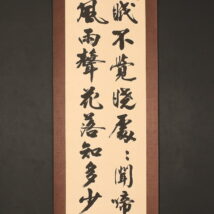 眠不覺曉處〻聞啼
風雨聲花落知多少